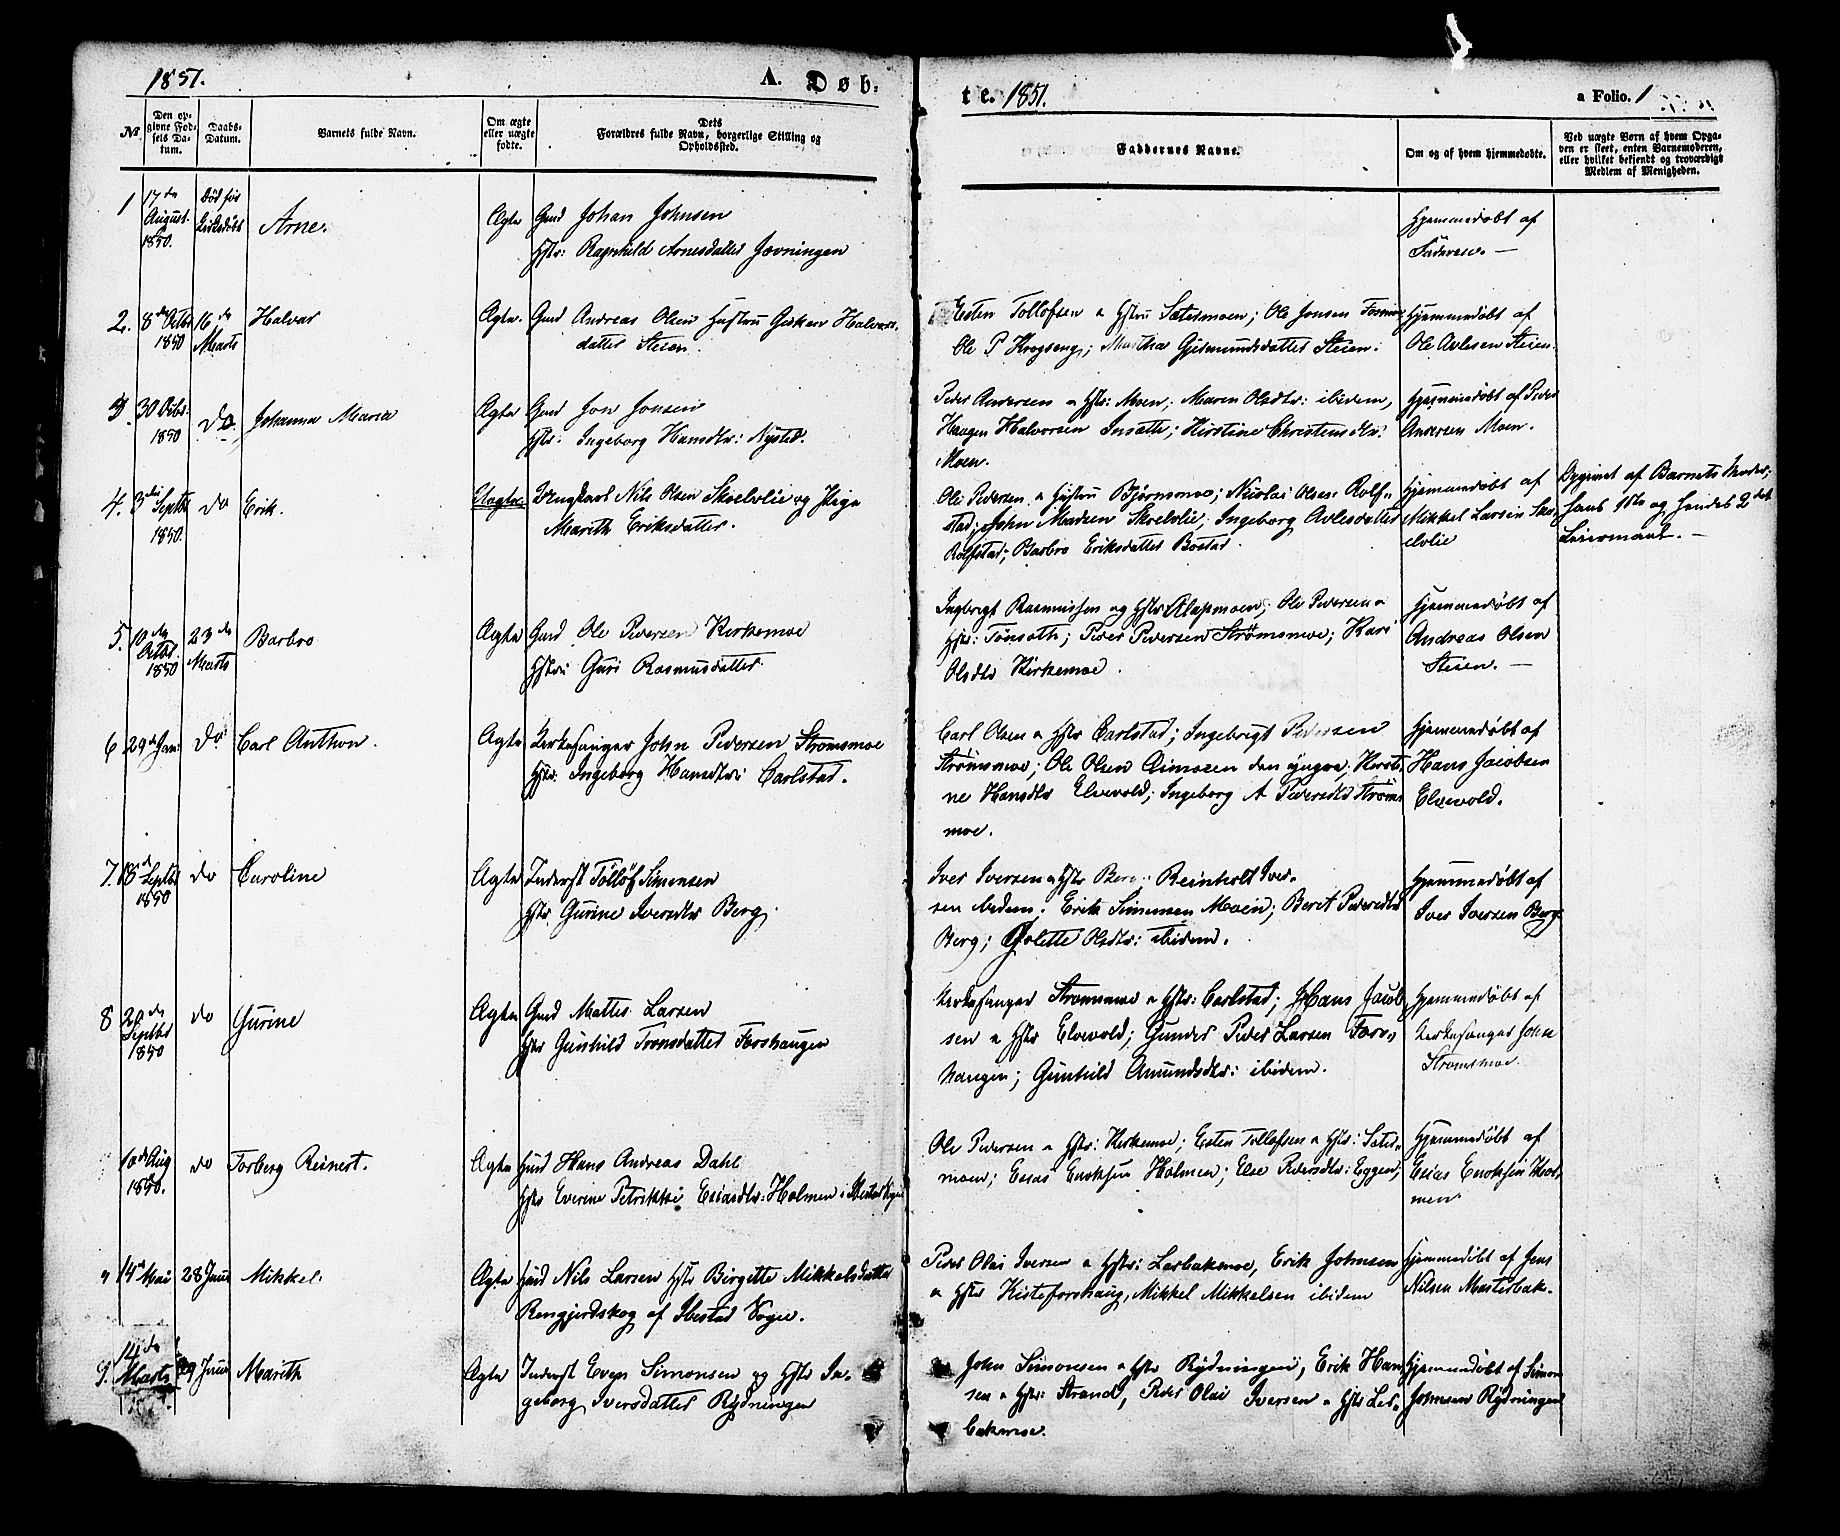 1851.
A. Døb-
te. 1851.
a Folio. 1
No.
Den op-
givne Fød-
sels Da-
tum.
Daabs-
Datum.
Barnets fulde Navn.
Om ægte
eller uægte
fødte.
Dets
Forældres fulde Navn, borgerlige Stilling og
Opholdssted.
Faddernes Navne.
Om og af hvem hjemmedøbte.
Ved uægte Børn af hvem Opga-
ven er skeet, enten Barnemoderen,
eller hvilket bekjendt og troværdigt
Medlem af Menigheden.
1
17de
August.
1850.
Død før
Arne.
Ægte
Gmd Johan Johnsen
Hstr: Ragnhild Arnesdatter Jovningen
Hjemmedøbt af
Faderen. —
2.
8de Octbr
1850
16de
Marts
Halvar
Ægte.
Gmd Andreas Olsen Hustru Gisken Halvors-
datter Steien.
Esten Tollofsen & Hstru Sætesmoen; Ole Jonsen
Ole P Krogseng; Maritha Gjermundsdatter Steien.
Hjemmedøbt af
Ole Avlesen Steien.
3.
30 Octbr.
1850
do.
Johanna Maria
Ægte
Gmd Jon Jonsen
Hstr: Ingeborg Hansdtr: Nysted.
Peder Andersen & Hstr: Moen; Maren Olsdtr: ibidem,
Haagen Halvorsen Insætte; Kirstine Christensdtr:
Moen.
Hjemmedøbt af Peder
Andersen Moen.
4.
3die Septbr
1850.
do
Erik.
Uægte.
Ungkarl Nils Olsen Skoelvlie og Pige
Marith Eriksdatter.
Ole Pedersen & Hustru Bjørnsmoe; Nicolai Olsen Rolf-
stad; John Madsen Skoelvlie; Ingeborg Avlesdatter
Rolfstad; Barbro Eriksdatter Bostad.
Hjemmedøbt af
Mikkel Larsen Sko-
elvlie
Opgivet af Barnets Moder;
hans 1ste og hendes 2det
Leiermaal. —
5.
10de
Octbr.
1850
23de
Marts
Barbro
Ægte
Gmd Ole Pedersen Kirkemoe
Hstru Guri Rasmusdatter
Ingbrigt Rasmussen og Hstr Alapmoen; Ole Pedersen &
Hstr: Tønsæth; Peder Pedersen Strømsmoe; Kari
Olsdtr Kirkemoe.
Hjemmedøbt af
Andreas Olsen
Steien. —
6
29de Jan:
do:
Carl Anthon.
Ægte
Kirkesanger John Pedersen Strømsmoe
Hstr: Ingeborg Hansdtr: Carlstad.
Carl Olsen & Hstr Carlstad; Ingebrigt Pedersen
Strømsmoe; Ole Olsen Simosen den yngre, Kirsti-
ne Hansdtr Elvevold; Ingeborg A Pedersdtr Strøms-
moe.
Hjemmedøbt af
Hans Jacobsen
Elvevold.
7.
18de
Septbr
1850
do
Caroline
Ægte
Inderst Tølløf Simensen
Hstr Gurine Iversdtr Berg.
Iver Iversen & Hstr Berg; Reinholt Iver-
sen ibidem; Erik Simensen Moen; Berit Pedersdtr
Berg; Golette Olsdtr: ibidem.
Hjemmedøbt af
Iver Iversen Berg.
8
20de
Septbr
1850
do
Gurine
Ægte
Gmd Mattes Larsen
Hstr Gunhild Tronsdatter Forshaugen
Kirkesanger Strømsmoe & Hstr: Carlstad; Hans Jacob-
sen & Hstr Elvevold; Gunder Peder Larsen Fors-
haugen; Gunhild Amundsdtr: ibidem.
Hjemmedøbt af
Kirkesanger John
Strømsmoe.
10de Aug
1850.
do
Torberg Reinert.
Ægte
Gmd Hans Andreas Dahl
Hstr Everine Petrikke Esiasdtr: Holmen i Ibestad Sogn
Ole Pedersen & Hstr: Kirkemoe; Esten Tollefsen & Hstr: Sætes-
moen; Esias Enoksen Holmen; Else Pedersdtr: Eggen;
Hjemmedøbt af
Esias Enoksen Hol-
men
14de Mai
28 Juni
Mikkel.
Ægte
Gmd Nils Larsen Hstr Birgitte Mikkelsdatter
Rengjerdskog af Ibestad Sogn.
Peder Olai Iversen & Hstr: Lærbakmoe, Erik Johnsen
& Hstr Kisteforshaug, Mikkel Mikkelsen ibidem
Hjemmedøbt af Jens
Nilsen Masterbak.
9.
14de
Marts
29 Juni
Marith
Ægte
Inderst Even Simonsen og Hstr In-
geborg Iversdatter Rydningen
John Simonsen & Hstr Rydningen, Erik Han-
sen & Hstr: Strand, Peder Olai Iversen & Hstr Lær-
bakmoe.
Hjemmedøbt af Simon
Johnsen Rydningen